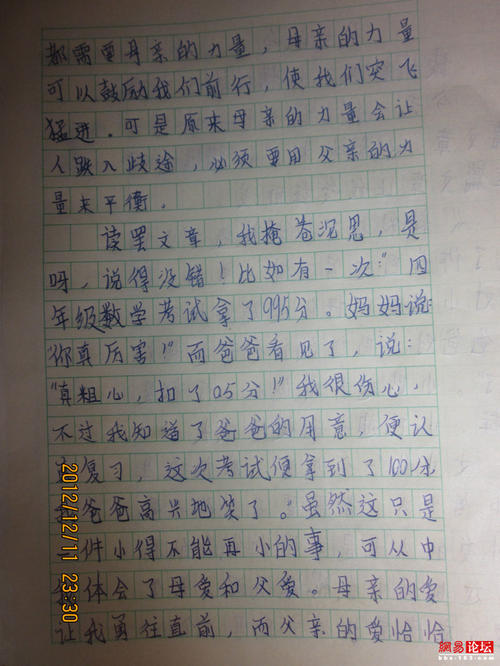 都需要母亲的力量，母亲的力量
可以鼓励我们前行，使我们突飞
猛进．可是原来母亲的力量会让
人跌入歧途，必须要用父亲的力
量来平衡．
读罢文章，我掩卷沉思，是
呀，说得没错！比如有一次："四
年级数学考试拿了995分。妈妈说：
你真厉害！"而爸爸看见了，说：
"真粗心，扣了05分！"我很伤心，
不过我知道了爸爸的用意，便认
复习，这次考试便拿到了100分
爸爸高兴地笑了。"虽然这只是
件小得不能再小的事，可从中
体会了母爱和父爱。母亲的爱
让我勇往直前，而父亲的爱恰恰
2012/12/11 23:30
网易论坛
bbs.163.com